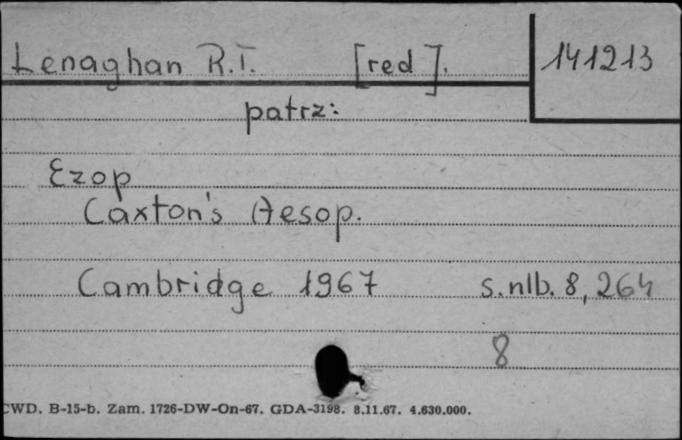 Lenaghan R.T. [red]. 141213
patrz:
Ezop
Caxton's Aesop.
Cambridge 1967 s.nlb. 8, 264
8
CWD. B-15-b. Zam. 1726-DW-On-67. GDA-3198. 8.11.67. 4.630.000.